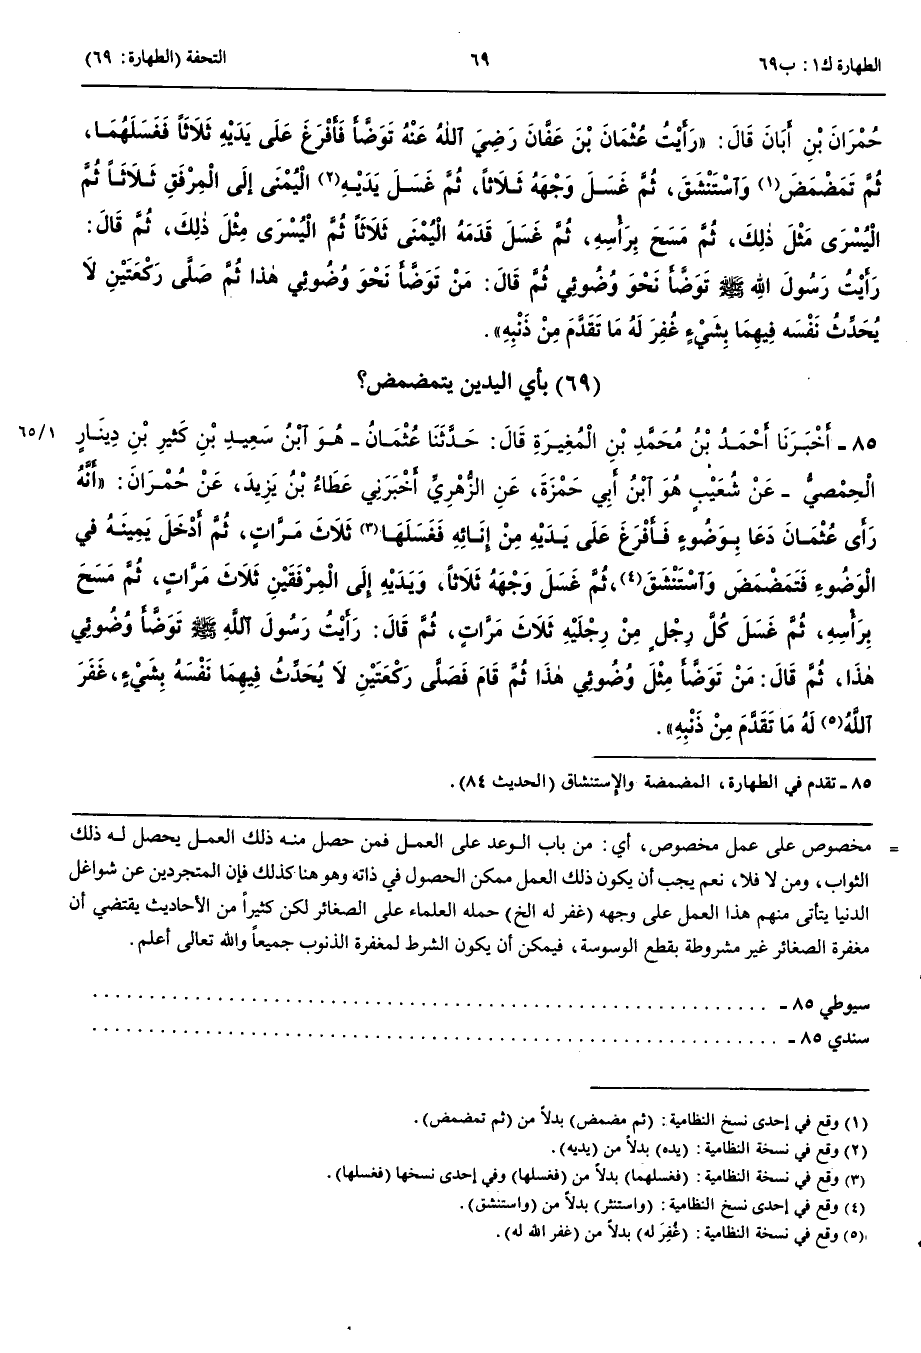 الطهارة ك١: ب٦٩ ٦٩ التحفة (الطهارة: ٦٩)
حُمْرَانَ بْنِ أَبَانَ قَالَ: «رَأَيْتُ عُثْمَانَ بْنَ عَفَّانَ رَضِيَ ٱللهُ عَنْهُ تَوَضَّأَ فَأَفْرَغَ عَلَى يَدَيْهِ ثَلَاثاً فَغَسَلَهُمَا،
ثُمَّ تَمَضْمَضَ(١) وَٱسْتَنْشَقَ، ثُمَّ غَسَلَ وَجْهَهُ ثَلَاثاً، ثُمَّ غَسَلَ يَدَيْهِ(٢) الْيُمْنَى إلَى الْمِرْفَقِ ثَلَاثاً ثُمَّ
الْيُسْرَى مَثْلَ ذٰلِكَ، ثُمَّ مَسَحَ بِرَأْسِهِ، ثُمَّ غَسَلَ قَدَمَهُ الْيُمْنَى ثَلَاثاً ثُمَّ الْيُسْرَى مِثْلَ ذٰلِكَ، ثُمَّ قَالَ:
رَأَيْتُ رَسُولَ اللهِ ﷺ تَوَضَّأَ نَحْوَ وُضُوئِي ثُمَّ قَالَ: مَنْ تَوَضَّأَ نَحْوَ وُضُوئِي هٰذا ثُمَّ صَلَّى رَكْعَتَيْنِ لَا
يُحَدِّثُ نَفْسَه فِيهِمَا بِشَيْءٍ غُفِرَ لَهُ مَا تَقَدَّمَ مِنْ ذَنْبِهِ».
(٦٩) بأي اليدين يتمضمض؟
٨٥ ـ أَخْبَرَنَا أَحْمَدُ بْنُ مُحَمَّدِ بْنِ الْمُغِيرَةِ قَالَ: حَدَّثَنَا عُثْمَانُ ـ هُوَ ٱبْنُ سَعِيدِ بْنِ كَثِيرِ بْنِ دِينَارٍ ٦٥/١
الْحِمْصِيُّ ـ عَنْ شُعَيْبٍ هُوَ ٱبْنُ أَبِي حَمْزَةَ، عَنِ الزُّهْرِيِّ أَخْبَرَنِي عَطَاءُ بْنُ يَزِيدَ، عَنْ حُمْرَانَ: «أَنَّهُ
رَأَى عُثْمَانَ دَعَا بِوَضُوءٍ فَأَفْرَغَ عَلَى يَدَيْهِ مِنْ إِنَائِهِ فَغَسَلَهَا(٣) ثَلَاثَ مَرَّاتٍ، ثُمَّ أَدْخَلَ يَمِينَهُ في
الْوَضُوءِ فَتَمَضْمَضَ وَٱسْتَنْشَقَ(٤)، ثُمَّ غَسَلَ وَجْهَهُ ثَلَاثاً، وَيَدَيْهِ إلَى الْمِرْفَقَيْنِ ثَلَاثَ مَرَّاتٍ، ثُمَّ مَسَحَ
بِرَأْسِهِ، ثُمَّ غَسَلَ كُلَّ رِجْلٍ مِنْ رِجْلَيْهِ ثَلَاثَ مَرَّاتٍ، ثُمَّ قَالَ: رَأَيْتُ رَسُولَ ٱللَّهِ ﷺ تَوَضَّأَ وُضُوئِي
هٰذَا، ثُمَّ قَالَ: مَنْ تَوَضَّأَ مِثْلَ وُضُوئِي هٰذَا ثُمَّ قَامَ فَصَلَّى رَكْعَتَيْنِ لَا يُحَدِّثُ فِيهِمَا نَفْسَهُ بِشَيْءٍ، غَفَرَ
ٱللَّهُ(٥) لَهُ مَا تَقَدَّمَ مِنْ ذَنْبِهِ».
٨٥ ـ تقدم في الطهارة، المضمضة والإستنشاق (الحديث ٨٤).
= مخصوص على عمل مخصوص، أي: من باب الوعد على العمل فمن حصل منه ذلك العمل يحصل له ذلك
الثواب، ومن لا فلا، نعم يجب أن يكون ذلك العمل ممكن الحصول في ذاته وهو هنا كذلك فإن المتجردين عن شواغل
الدنيا يتأتى منهم هذا العمل على وجهه (غفر له الخ) حمله العلماء على الصغائر لكن كثيراً من الأحاديث يقتضي أن
مغفرة الصغائر غير مشروطة بقطع الوسوسة، فيمكن أن يكون الشرط لمغفرة الذنوب جميعاً والله تعالى أعلم.
سيوطي ٨٥ ـ . . . . . . . . . . . . . . . . . . . . . . . . . . . . . . . . . . . . . . . . . . . . . . . . . . . . . . . .
سندي ٨٥ ـ . . . . . . . . . . . . . . . . . . . . . . . . . . . . . . . . . . . . . . . . . . . . . . . . . . . . . . . .
(١) وقع في إحدى نسخ النظامية: (ثم مضمض) بدلاً من (ثم تمضمض).
(٢) وقع في نسخة النظامية: (يده) بدلاً من (يديه).
(٣) وقع في نسخة النظامية: (فغسلهما) بدلاً من (فغسلها) وفي إحدى نسخها (فغسلها).
(٤) وقع في إحدى نسخ النظامية: (واستنثر) بدلاً من (واستنشق).
(٥) وقع في نسخة النظامية: (غُفِرَ له) بدلاً من (غفر الله له).